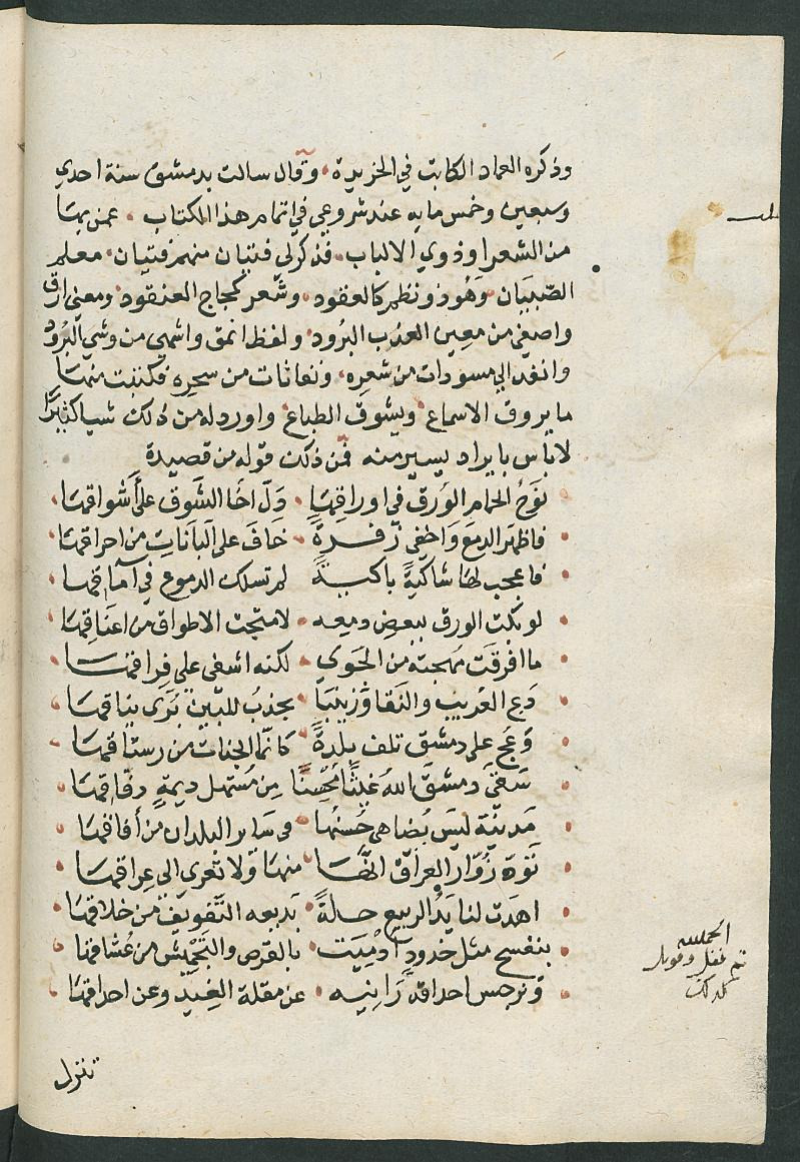 وذكره العماد الكاتب في الخريدة وقال سالت بدمشق سنة احدي
وسبعين وخمس مايه عند شروعي في اتمام هذا الكتاب عمن بها
من الشعرا وذوي الالباب فذكر لي فتيان منهم فتيان معلم
الصّبيَان وهُو ذو نظم كالعقود وشعر كمجاج العنقود ومعني ارق
واصفي من معين العذب البرُود ولفظ انمق واشهي من وشي البرُود
وانفد الي مسودات من شعره ونفاثات من سحره فكتبت منها
ما يروق الاسماع ويشوق الطباع واورد له من ذلك شيا كثيرًا
لاباس بايراد يسير منه فمن ذلك قوله من قصيدة
نَوحُ الحمام الوُرق في اوراقِهَا دَلّ اخَا الشَوق علي أشواقها
فاظهَر الدمعَ وَاخفي زفرةً خافَ علي البَانات من احراقها
فاعجب لهَا شاكيةً باكيةً لم تسلك الدموع في آماقها
لو بكت الورق ببعض دمعه لامتحت الاطواق من اعنَاقِهَا
ما افرقَت مُهجته من الجَوي لكنه اشفي علي فِراقها
دَع العُذيب والنَقا وَزينبَا بجذبُ للبَين بُرَي نياقها
وَعُج علي دمشق تلف بلدةً كانّما الجنات من رستاقها
سَقَي دمشقَ اللهُ غيثًا مُحسِنًا مِن مُستهل ديمةٍ دفاقها
مَدينَة ليسَ يُضاهي حُسنُها في ساير البلدان من آفاقها
تَودّ زُوّار العِراقُ انّهَا منهَا وَلا تُعزي الي عِراقها
اهدَت لنا يَدُ الربيع حلةً بديعه التَفويف من خلاقها
بنفسج مثل خدودٍ أدميَت بالقرص والتجميش من عُشاقها
وَنرجس احداقه رَانيه عن مقلة الغِيد وعن احداقها
تنزل
الحمد لله